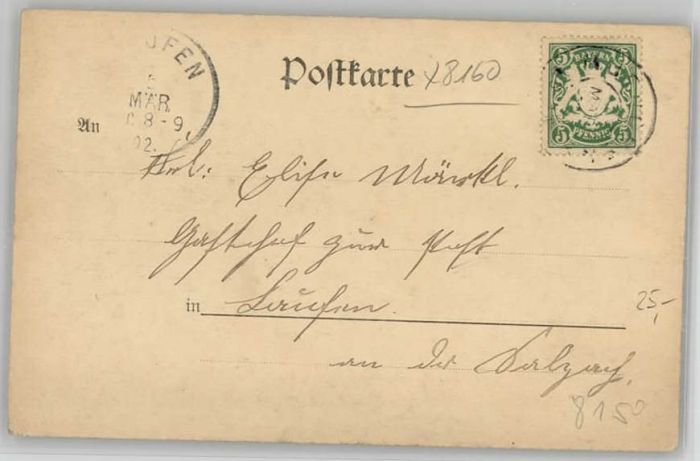 UFEN
MÄR
8-9
02.
Postkarte
x8160
BAYERN
5 5
5 5
PFENNIG
An
Frl: Elise Märkl.
Gasthof zur Post
in Laufen.
25,-
an der Salzach.
8150